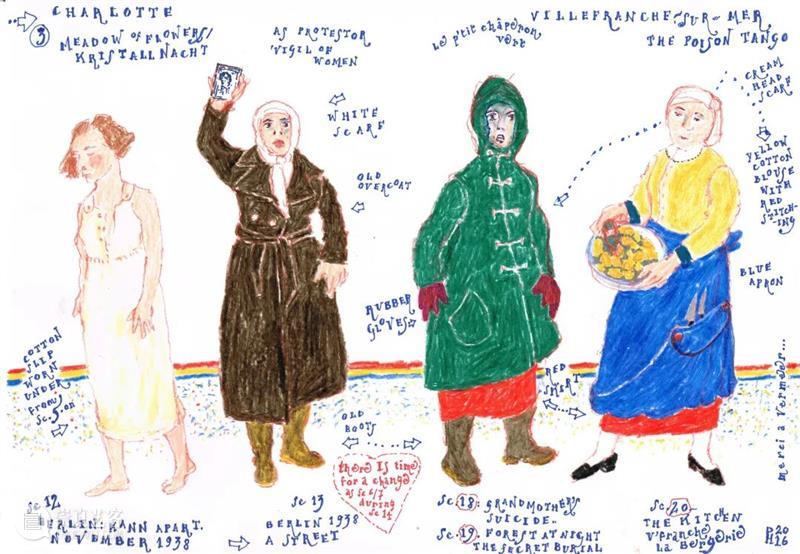 CHARLOTTE
3
MEADOW OF FLOWERS/
KRISTALLNACHT
AS PROTESTOR
VIGIL OF
WOMEN
le p'tit chaperon
vert
VILLEFRANCHE-SUR-MER
THE POISON TANGO
WHITE
SCARF
CREAM
HEAD
SCARF
OLD
OVERCOAT
YELLOW
COTTON
BLOUSE
WITH
RED
STITCH-
ING
BLUE
APRON
RUBBER
GLOVES
COTTON
SLIP
WORN
UNDER
from
Sc.5.on
RED
SKIRT
merci a Vermeer...
OLD
BOOTS
there IS time
for a change
as Sc 6/7
during
Sc 14
Sc 12
BERLIN: KANN APART.
NOVEMBER 1938
Sc 13
BERLIN 1938
A STREET
Sc.18: GRANDMOTHER'S
SUICIDE..
Sc.19. FOREST AT NIGHT
THE SECRET BURIAL
Sc.20
THE KITCHEN
V'FRANCHE
La Bergerie